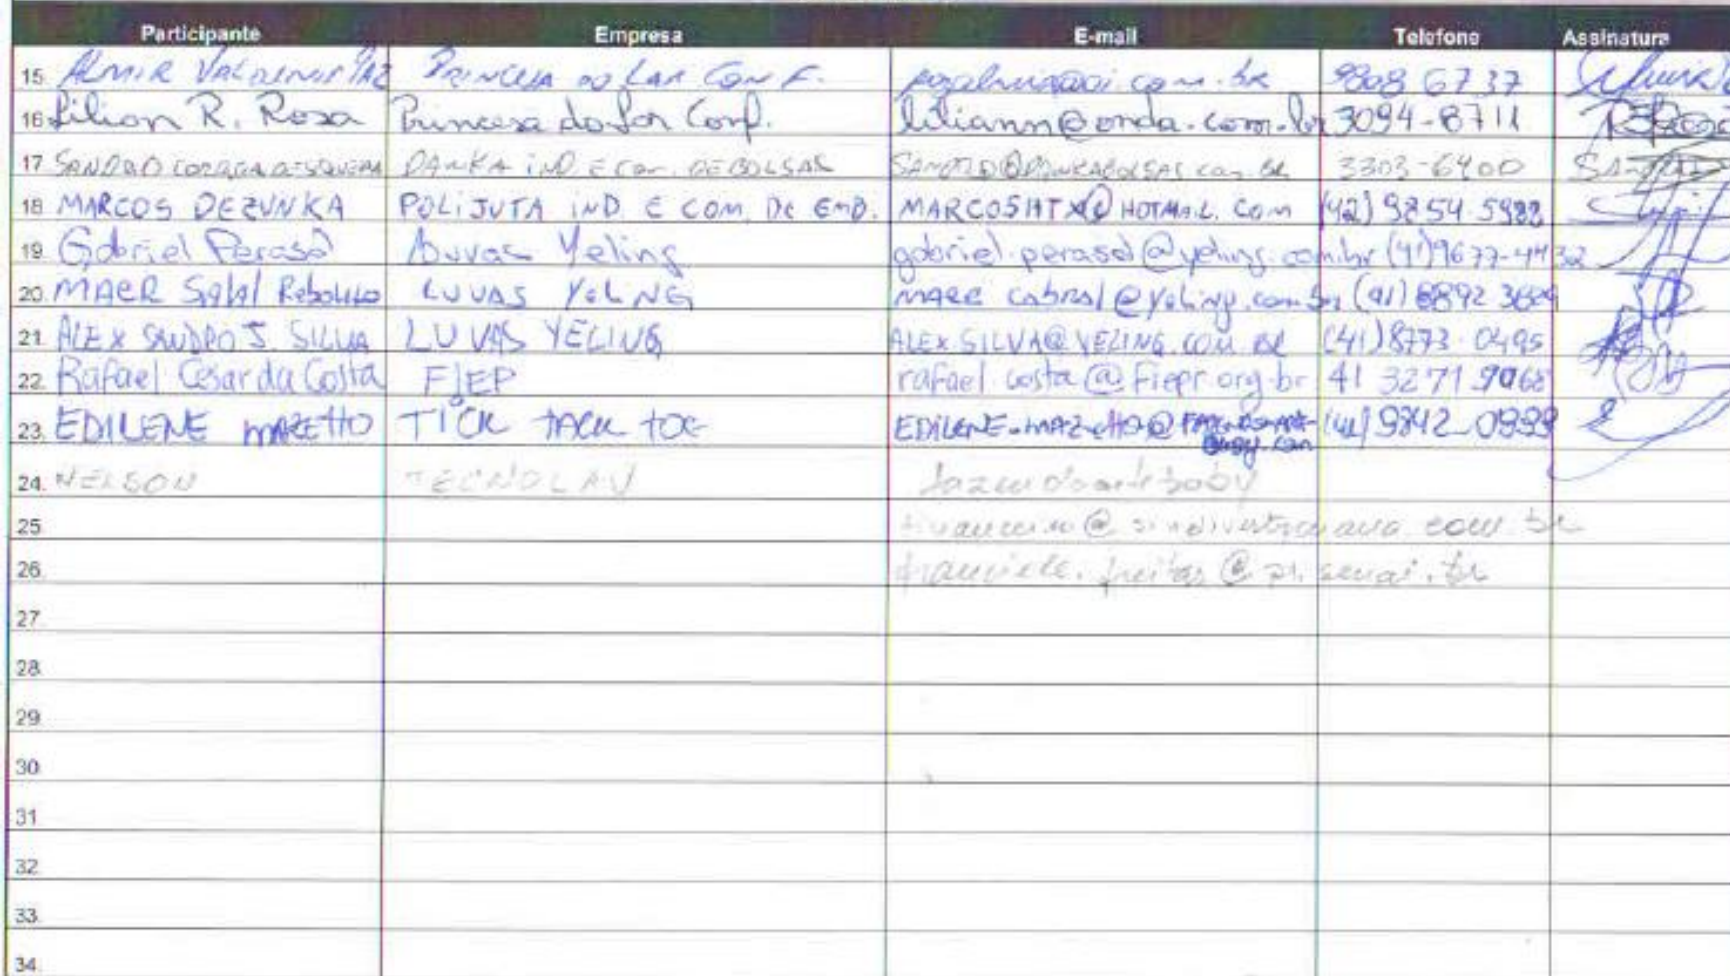 Participante Empresa E-mail Telefone Assinatura
15. ALMIR VALDEMIR PAZ PRINCESA DO LAR CONF. 9808 6737
16. Lilian R. Rosa Princesa do Lar Conf. liliann@onda.com.br 3094-8711
17. SANDRO DANKA IND. E COM. DE BOLSAS SANDRO@DANKABOLSAS.COM.BR 3303-6400
18. MARCOS DEZUNKA POLIJUTA IND. E COM. DE EMB. MARCOSHTX@HOTMAIL.COM (42) 9854 5988
19. Gabriel Perasol Luvas Yeling gabriel.perasol@yeling.com.br (41) 9677-4432
20. MAER LUVAS YELING (41) 8892
21. ALEX SANDRO J. SILVA LUVAS YELING ALEX.SILVA@YELING.COM.BR (41) 8773-0495
22. Rafael Cesar da Costa FIEP rafael.costa@fiepr.org.br 41 3271 9068
23. EDILENE MAZETTO TICK TACK TOC (41) 9842-0999
24. NELSON TECNOLAV
25.
26. franciele.freitas@pr.senai.br
27.
28.
29.
30.
31.
32.
33.
34.